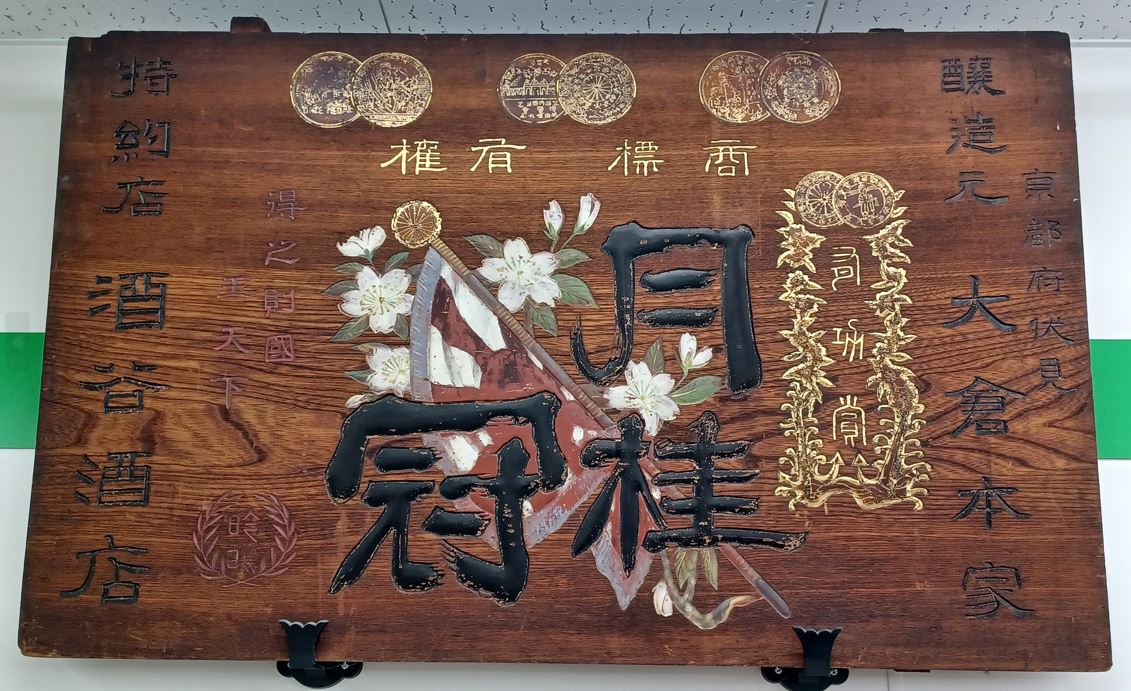 商標 有權
京都府伏見
釀造元 大倉本家
有功賞
月桂冠
得之財國
王天下
特約店 酒谷酒店